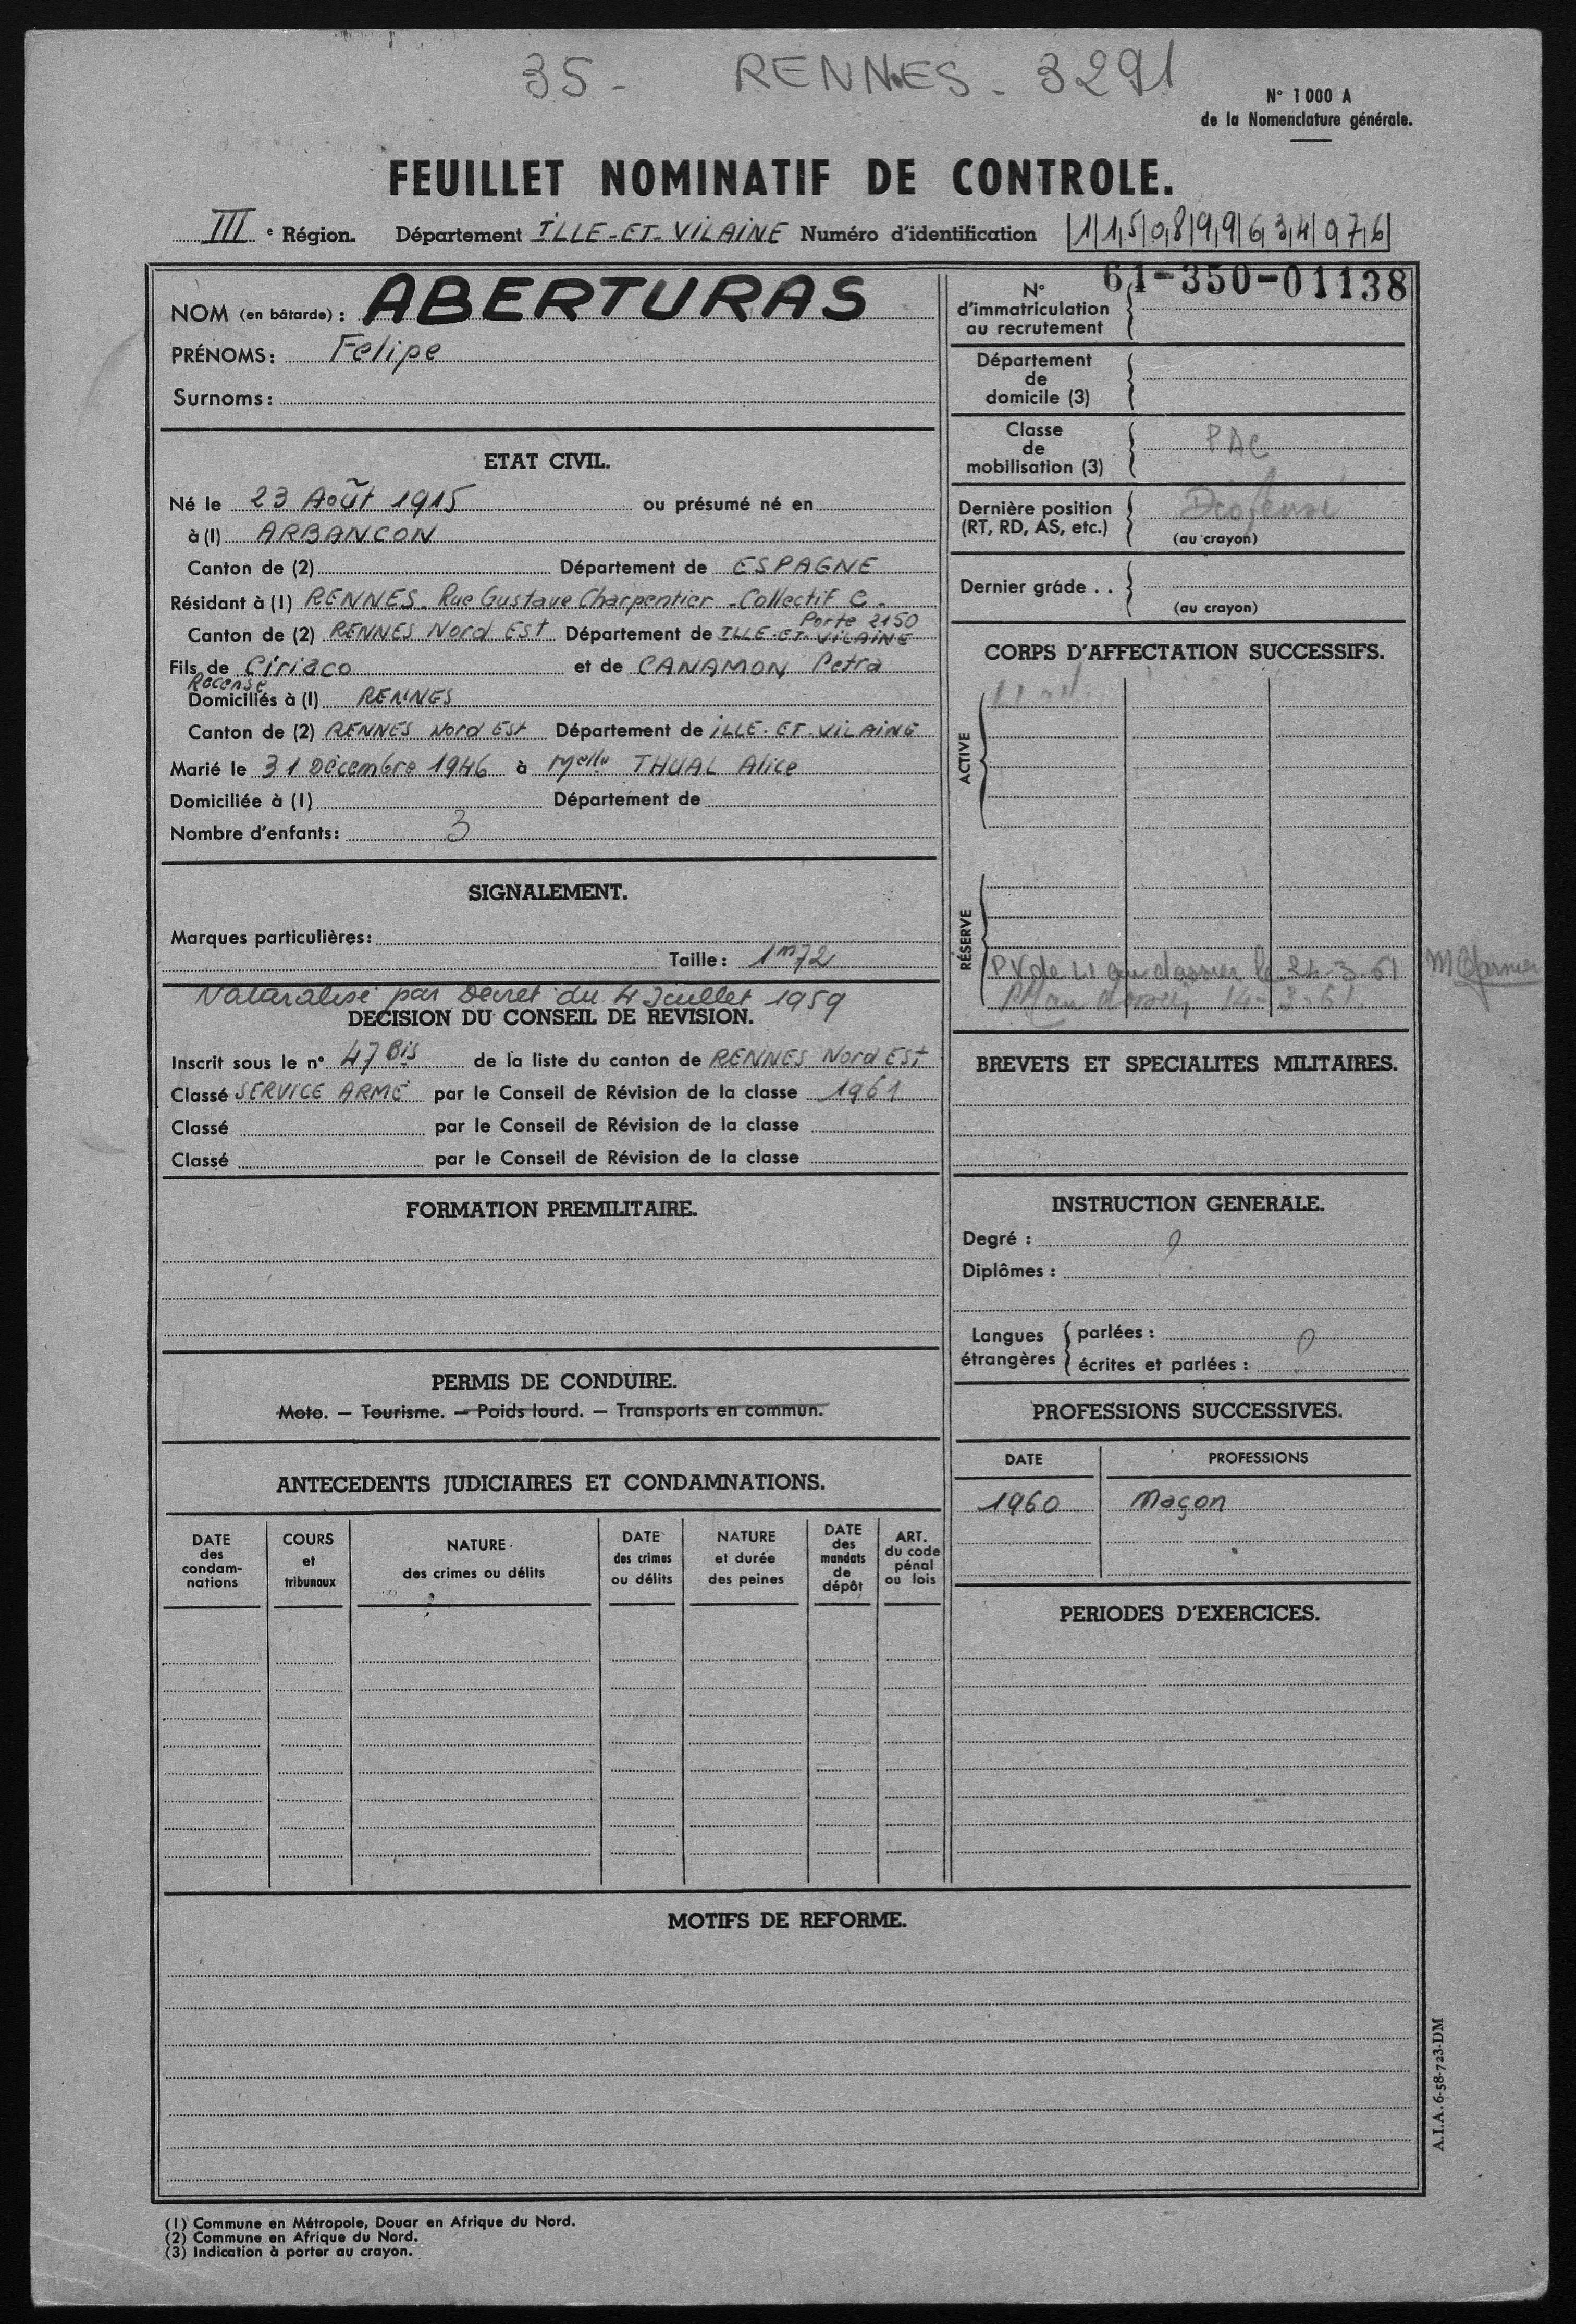 35 - RENNES - 3291
N° 1 000 A
de la Nomenclature générale.
FEUILLET NOMINATIF DE CONTROLE.
III e Région. Département ILLE-ET-VILAINE Numéro d'identification 1 15 08 99 634 076
NOM (en bâtarde) : ABERTURAS
PRÉNOMS : Felipe
Surnoms :
ETAT CIVIL.
Né le 23 Août 1915 ou présumé né en
à (1) ARBANCON
Canton de (2) Département de ESPAGNE
Résidant à (1) RENNES. Rue Gustave Charpentier - Collectif C.
Porte 2150
Canton de (2) RENNES Nord Est Département de ILLE-ET-VILAINE
Fils de Ciriaco et de CANAMON Petra
Recensé
Domiciliés à (1) RENNES
Canton de (2) RENNES Nord Est Département de ILLE-ET-VILAINE
Marié le 31 Décembre 1946 à Melle THUAL Alice
Domiciliée à (1) Département de
Nombre d'enfants : 3
SIGNALEMENT.
Marques particulières :
Taille : 1m72
Naturalisé par Décret du 4 Juillet 1959
DECISION DU CONSEIL DE REVISION.
Inscrit sous le n° 47 Bis de la liste du canton de RENNES Nord Est
Classé SERVICE ARMÉ par le Conseil de Révision de la classe 1961
Classé par le Conseil de Révision de la classe
Classé par le Conseil de Révision de la classe
FORMATION PREMILITAIRE.
PERMIS DE CONDUIRE.
Moto. — Tourisme. — Poids lourd. — Transports en commun.
ANTECEDENTS JUDICIAIRES ET CONDAMNATIONS.
DATE des condam-nations
COURS et tribunaux
NATURE des crimes ou délits
DATE des crimes ou délits
NATURE et durée des peines
DATE des mandats de dépôt
ART. du code pénal ou lois
61-350-01138
N°
d'immatriculation
au recrutement
Département
de
domicile (3)
Classe
de
mobilisation (3)
PAC
Dernière position
(RT, RD, AS, etc.)
(au crayon)
Dernier grade . .
(au crayon)
CORPS D'AFFECTATION SUCCESSIFS.
ACTIVE
RÉSERVE
PV de LI au dossier le 24-3-61
PM au dossier 14-3-61
BREVETS ET SPECIALITES MILITAIRES.
INSTRUCTION GENERALE.
Degré : 0
Diplômes :
Langues étrangères
parlées : 0
écrites et parlées :
PROFESSIONS SUCCESSIVES.
DATE PROFESSIONS
1960 Maçon
PERIODES D'EXERCICES.
MOTIFS DE REFORME.
A.I.A. 6-58-723-DM
(1) Commune en Métropole, Douar en Afrique du Nord.
(2) Commune en Afrique du Nord.
(3) Indication à porter au crayon.